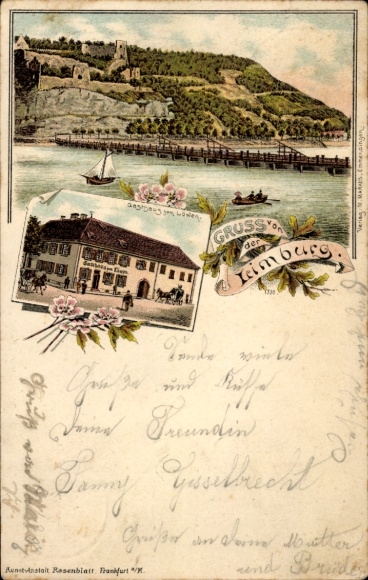 Gasthaus zum Löwen.
Gasthaus zum Löwen
GRUSS von
der
Limburg.
Verlag v. M. Markus, Emmendingen.
Sende viele
Grüße und Küsse
Deine Freundin
Fanny Gisselbrecht
Grüße an deine Mutter
und Bruder
Gruß von
Kunst-Anstalt Rosenblatt, Frankfurt a/M.